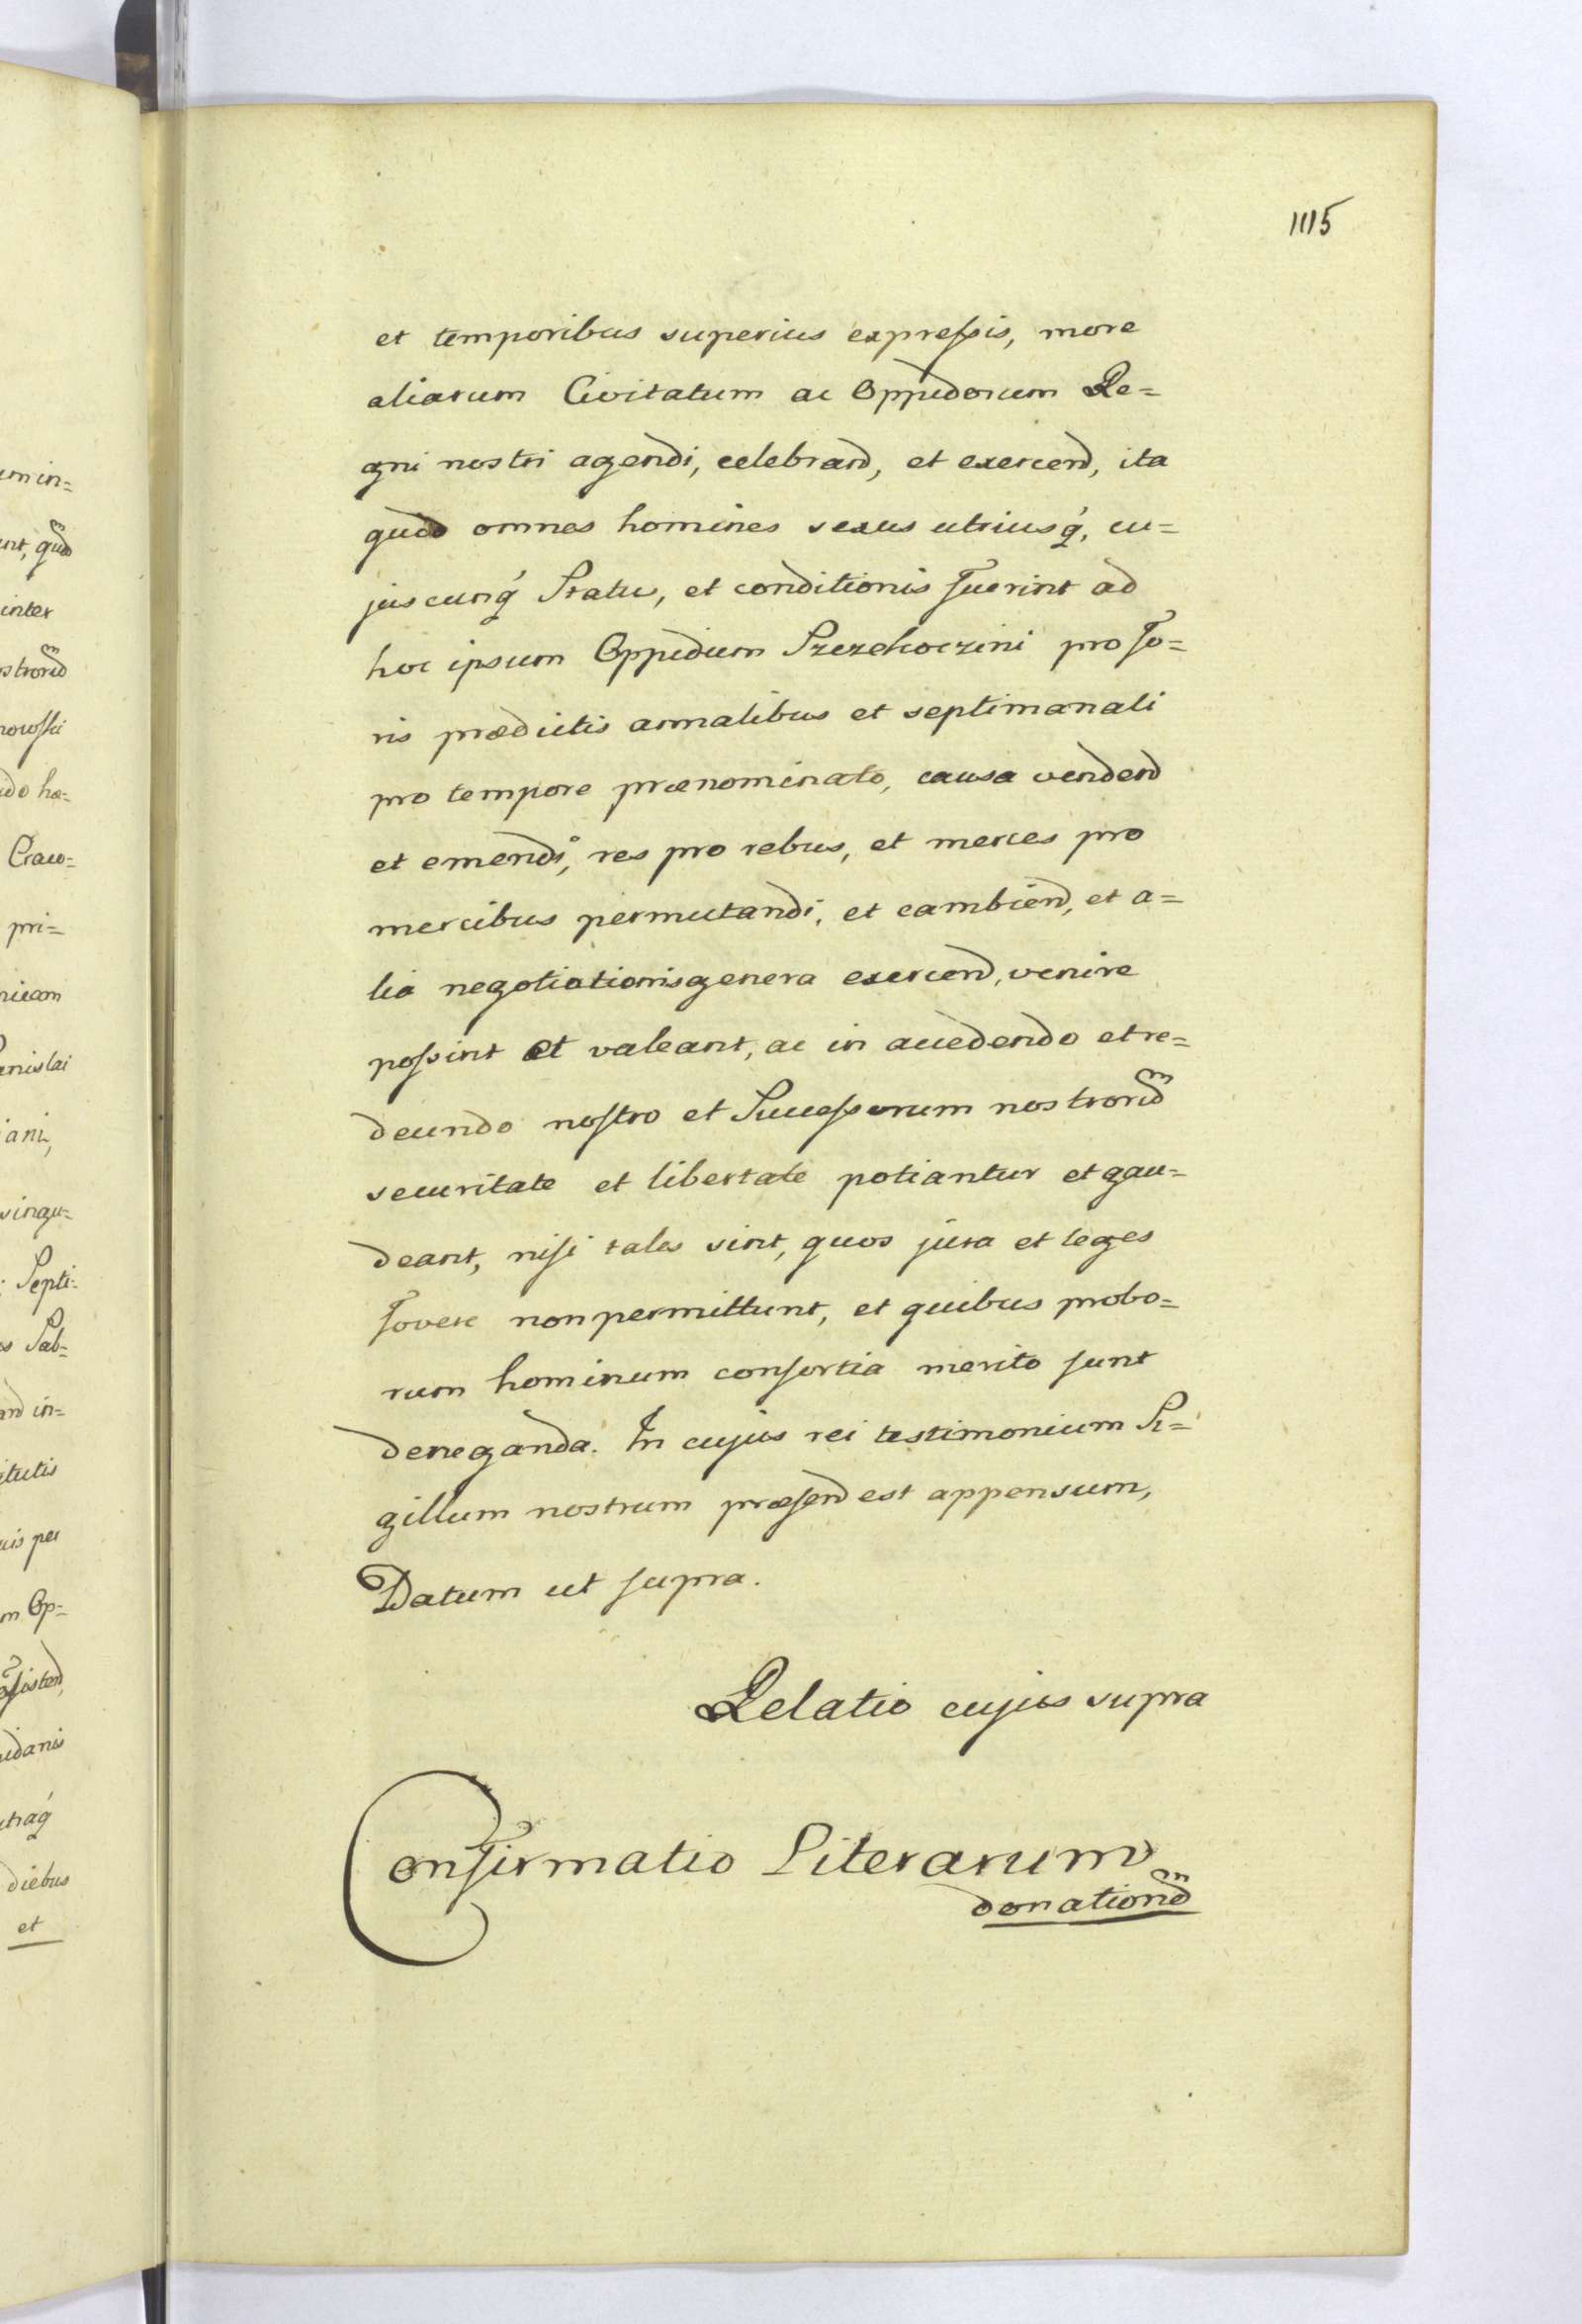 1115
et temporibus superius expressis, more
aliarum Civitatum ac Oppidorum Re=
gni nostri agendi, celebrand, et exercend, ita
quod omnes homines sexus utriusq́, cu=
juscunq́ Status, et conditionis fuerint ad
hoc ipsum Oppidum Szczekoczini pro fo=
ris prædictis annalibus et septimanali
pro tempore prænominato, causa vendend
et emendi, res pro rebus, et merces pro
mercibus permutandi, et cambiend, et a=
lia negotiationis genera exercend, venire
possint et valeant, ac in accedendo et re=
deundo nostro et Successorum nostrorũ
securitate et libertate potiantur et gau=
deant, nisi tales sint, quos jura et leges
fovere non permittunt, et quibus probo=
rum hominum consortia merito sunt
deneganda. In cujus rei testimonium Si=
gillum nostrum præsend est appensum,
Datum ut supra.
Relatio cujus supra
Confirmatio Literarum
donationũ